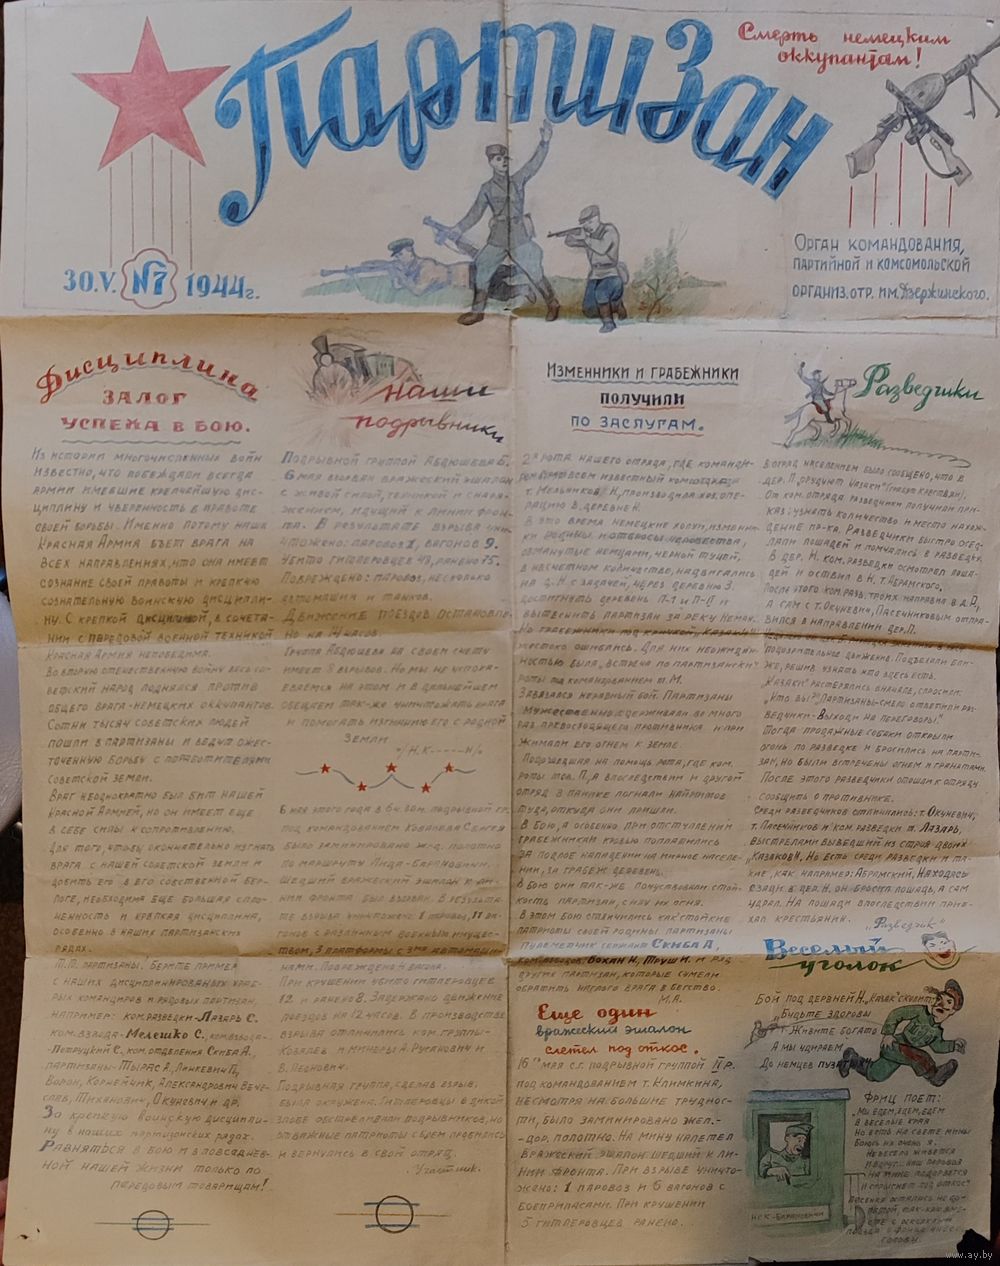 Партизан
Смерть немецким
оккупантам!
30.V. №7 1944г.
Орган командования,
партийной и комсомольской
организ. отр. им. Дзержинского.
Дисциплина
залог
успеха в бою.
Из истории многочисленных войн
известно, что побеждали всегда
армии имевшие крепчайшую дис-
циплину и уверенность в правоте
своей борьбы. Именно потому наша
Красная Армия бъет врага на
всех направлениях, что она имеет
сознание своей правоты и крепкую
сознательную воинскую дисципли-
ну. С крепкой дисциплиной, в сочета-
нии с передовой военной техникой
Красная Армия непобедима.
Во вторую отечественную войну весь со-
ветский народ поднялся против
общего врага-немецких оккупантов.
Сотни тысяч советских людей
пошли в партизаны и ведут ожес-
точенную борьбу с поработителями
Советской земли.
Враг неоднократно был бит нашей
Красной Армией, но он имеет еще
в себе силы к сопротивлению.
Для того, чтобы окончательно изгнать
врага с нашей советской земли и
добить его в его собственной бер-
логе, необходима еще большая спло-
ченность и крепкая дисциплина,
особенно в наших партизанских
рядах.
Т.т. партизаны! Берите пример
с наших дисциплинированых храб-
рых командиров и рядовых партизан,
например: ком. разведки-Лазарь С.
ком. взвода-Мелешко С., ком. взвода-
Петруцкий С. ком. отделения Скиба А.
партизаны-Тырас А., Линкевич П.,
Воран, Корнейчик, Александрович Вече-
слав, Тиханович, Окунович и др.
За крепкую воинскую дисципли-
ну в наших партизанских рядах.
Равняться в бою и в повседнев-
ной нашей жизни только по
передовым товарищам!
Наши
подрывники
Подрывной группой Абдюшева Б.
6 мая взорван вражеский эшалон
с живой силой, техникой и снаря-
жением, идущий к линии фрон-
та. В результате взрыва уни-
чтожено: паровоз 1, вагонов 9.
Убито гитлеровцев 43, ранено 75.
Повреждено: паровоз, несколько
автомашин и танков.
Движение поездов остановле-
но на 14 часов.
Группа Абдюшева на своем счету
имеет 8 взрывов. Но мы не успока-
еваемся на этом и в дальнейшем
обещаем так-же уничтожать врага
и помогать изгнанию его с родной
земли
6 мая этого года в 6ч. 30м. подрывной гр.
под командованием Ковалева Сергея
было заминировано ж-д. полотно
по маршруту Лида-Барановичи.
Шедший вражеский эшалон к ли-
нии фронта был взорван. В результа-
те взрыва уничтожено: 1 паровоз, 11 ва-
гонов с различным военным имущес-
твом, 3 платформы с 3мя автомаши-
нами. Повреждено 4 вагона.
При крушении убито гитлеровцев
12 и ранено 8. Задержано движение
поездов на 12 часов. В производстве
взрыва отличились ком. группы-
Ковалев и минеры А. Русанович и
В. Леонович.
Подрывная группа, сделав взрыв,
была окружена. Гитлеровцы в дикой
злобе обстреливали подрывников, но
отважные патриоты с боем пробились
и вернулись в свой отряд.
Участник.
Изменники и грабежники
получили
по заслугам.
2я рота нашего отряда, где команди-
т. Мельников Н, производила хоз. опе-
рацию в деревне Н.
В это время немецкие холуи, изменни-
ки родины и отбросы человечества,
обманутые немцами, черной тучей,
в несчетном количестве, надвигались
на д. Н с задачей, через деревню З.
достигнуть деревень П-I и П-II и
вытеснить партизан за реку Неман.
Но грабежники под кличкой „Казаки"
жестоко ошиблись. Для них неожидан-
ностью была, встреча по партизански
роты под командованием т. М.
Завязался неравный бой. Партизаны
мужественно сдерживали во много
раз превосходящего противника и при-
жимали его огнем к земле.
Подошедшая на помощь рота, где ком.
роты тов. П, а впоследствии и другой
отряд в панике погнали
туда, откуда они пришли.
В бою, а особенно при отступлении
грабежники кровью поплатились
за подлое нападение на мирное населе-
нии, за грабеж деревень.
В бою они так-же почувствовали стой-
кость партизан, силу их огня.
В этом бою отличились как стойкие
патриоты своей родины партизаны
пулеметчик Скиба А,
Бохан Н, Труш И. и ряд
других партизан, которые сумели
обратить наглого врага в бегство.
М.А.
Еще один
вражеский эшалон
слетел под откос.
16го мая с.г. подрывной группой II р.
под командованием т. Климкина,
несмотря на большие труднос-
ти, было заминировано жел.-
-дор. полотно. На мину налетел
вражеский эшалон шедший к ли-
нии фронта. При взрыве уничто-
жено: 1 паровоз и 6 вагонов с
боеприпасами. При крушении
5 гитлеровцев ранено.
Разведчики
В отряд населением было сообщено, что в
дер. П, орудуют „казаки" (грабят крестьян).
От ком. отряда разведчики получили при-
каз: узнать количество и место нахож-
дение пр-ка. Разведчики быстро осед-
лали лошадей и помчались в разведку.
В дер. Н. ком. разведки осмотрел лоша-
дей и оствил в Н. т. Абрамского.
После этого ком. разв. троих направил в д. Р,
а сам с т. Окуневич, Пасечниковым отпра-
вился в направлении дер. П.
подозрительное движение. Подъехали бли-
же, решив узнать кто здесь есть.
„Казаки" растерялись вначале, спросили:
„Кто вы?" „Партизаны-смело ответили раз-
ведчики-Выходи на переговоры."
Тогда продажные собаки открыли
огонь по разведке и бросились на парти-
зан, но были встречены огнем и гранатами.
После этого разведчики отошли к отряду
сообщить о противнике.
Среди разведчиков отличились: т. Окуневич,
т. Пасечников и ком. разведки т. Лазарь,
выстрелами вывевший из строя двоих
„Казаков". Но есть среди разведки и та-
кие, как например: Абрамский. Находясь
сзади в дер. Н. он бросил лошадь, а сам
удрал. На лошади впоследствии прие-
хал крестьянин.
„Разведчик"
Веселый
уголок
Бой под дервней Н., „Казак" скулит:
„Будьте здоровы
Живите богато
А мы удираем
До немцев пузатых"
Фриц поет:
„Мы едем, едем, едем
В веселые края
Но есть на свете мины
Боюсь их очень я.
Не весело живется
И вдруг: наш паровоз
На мине подорвется
И спрыгнет под откос"
Песенка осталась не до-
петой, так-как вме-
сте с осколками
голову.
НСК-Барановичи
www.ay.by